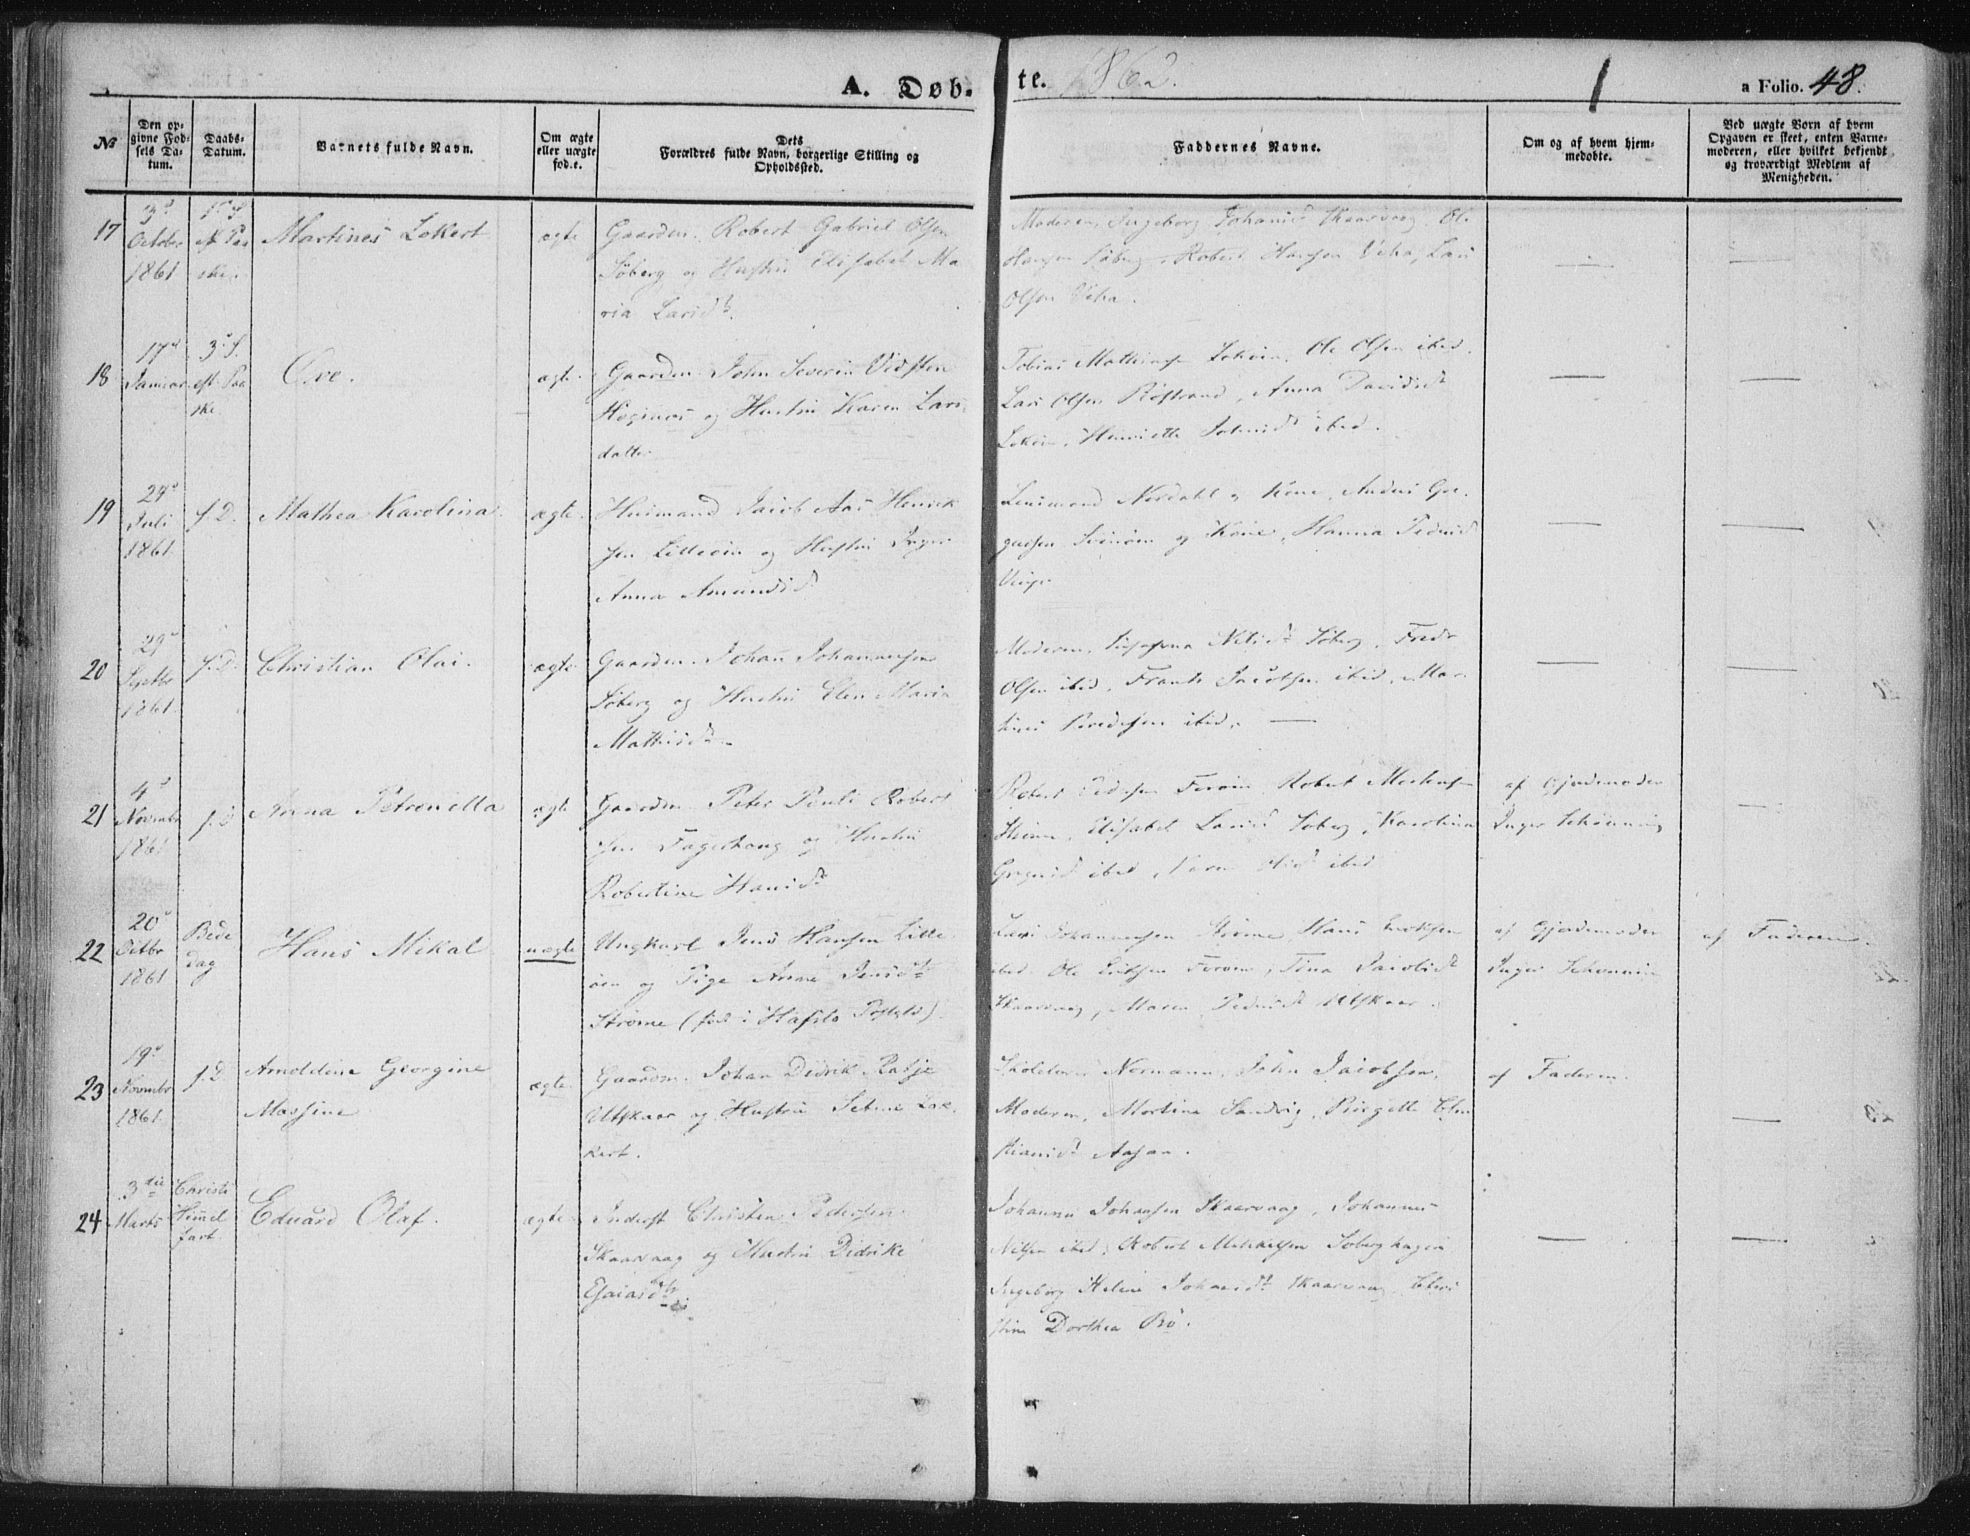 A. Døb- te. 1862. a Folio. 48.
No
Den op-
givne Fød-
sels Da-
tum.
Daabs-
Datum.
Barnets fulde Navn.
Om ægte
eller uægte
fød.e.
Dets
Forældres fulde Navn, borgerlige Stilling og
Opholdssted.
Faddernes Navne.
Om og af hvem hjem-
medøbte.
Ved uægte Born af hvem
Opgaven er skeet, enten Barne-
moderen, eller hvilket bekjendt
og troværdigt Medlem af
Menigheden.
17
3d October 1861
1ste S. eft. Paaske
Martines Lokert
ægte
Gaardm. Robert Gabriel Olsen
Søberg og Hustru Elisabet Ma
ria Larsdt.
Moderen, Ingeborg Johansdt Skaarvaag, Ole
Hansen Søberg, Robert Hansen Veha, Lars
Olsen Veha.
18
17d Januar
3d S. eft. Paaske
Ove.
ægte
Gaardm. John Severin Vidsten
og Hustru Karen Lars
datter
Tobias Mathias Ole Olsen ibed.
Lars Olsen Røstrand, Anna Davidsdt
Henriette ibed.
19
24d Juli 1861
s. D.
Mathea Karolina.
ægte
Huusmand Jacob Aas Henrik
sen Litleøen og Hustru Inger
Anna Amundsdt
Nordahl og Kone, Anders Gre
gersen og Kone, Hanna Pedersdt
20
29d Septbr 1861
s. D.
Christian Olai.
ægte
Gaardm. Johan Johannesen
Søberg og Hustru Elen Maria
Mathisdt.
Moderen, Nilsdt Søberg, Fredr
Olsen ibed, Frants Jacobsen ibed, Mar
ibed.
21
4d Novembr 1861
s. D.
Anna Petronella
ægte
Gaardm. Peter Pauli Robert
sen Fagerhaug og Hustru
Robertine Hansdt
Robert Pedersen Robert
Elisabet Larsdt Søberg, Karolina
ibed, Olsdt ibed
af Gjordemoder
Inger Schønning
22
20d Octbr 1861
Bede
dag
Hans Mikal
uægte
Ungkarl Jens Hansen Litle
øen og Pige Anne Jensdt
Strøme (fød i Hafslo Pstgld).
Lars Johannesen Strøme, Hans
ibed. Ole Eriksen Tina Jacobsdt
Skaarvaag, Maren Pedersdt Utskaar.
af Gjordemoder
Inger Schønning
af Faderen.
23
19d Novembr 1861.
s. D.
Arnoldine Georgine
Massine
ægte
Gaardm. Johan Didrik Ratje
Utskaar og Hustru Lok
kert.
Skolelærer Normann, John Jacobsen,
Moderen, Martina Sandvig, Chri
stiansdt
af Faderen.
24
3die Marts
Christi
Himmel
fart
Eduard Olaf.
ægte
Inderst Christen Pedersen
Skaarvaag og Hustru Didrike
Esaiasdtr.
Johannes Johansen Skaarvaag, Johannes
Nilsen ibed, Robert Mikkelsen Søberghagen
Ingeborg Helene Skaarvaag, Chri
stine Dorthea Bø.